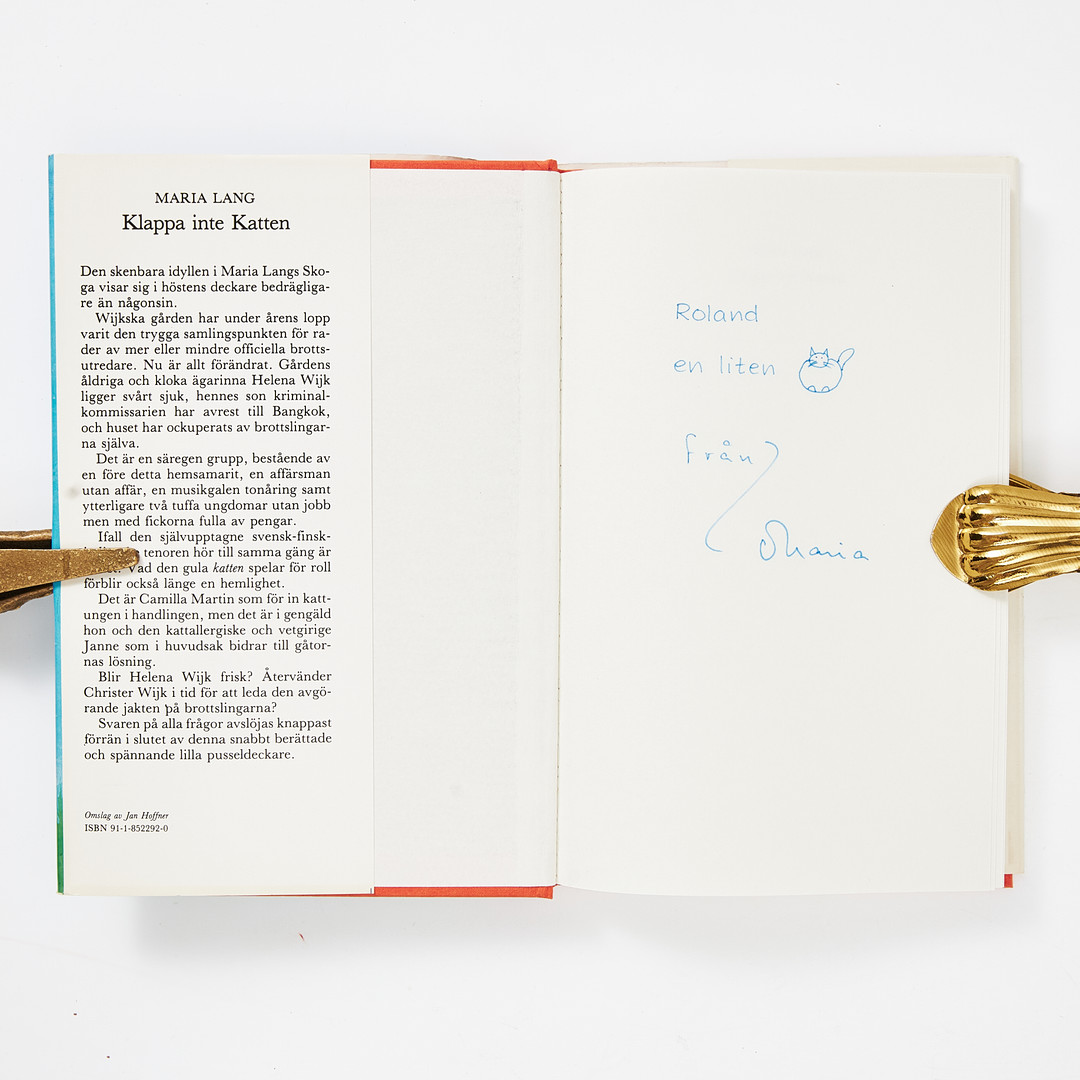 MARIA LANG
Klappa inte Katten
Den skenbara idyllen i Maria Langs Sko-
ga visar sig i höstens deckare bedrägliga-
re än någonsin.
Wijkska gården har under årens lopp
varit den trygga samlingspunkten för ra-
der av mer eller mindre officiella brotts-
utredare. Nu är allt förändrat. Gårdens
åldriga och kloka ägarinna Helena Wijk
ligger svårt sjuk, hennes son kriminal-
kommissarien har avrest till Bangkok,
och huset har ockuperats av brottslingar-
na själva.
Det är en säregen grupp, bestående av
en före detta hemsamarit, en affärsman
utan affär, en musikgalen tonåring samt
ytterligare två tuffa ungdomar utan jobb
men med fickorna fulla av pengar.
Ifall den självupptagne svensk-finsk-
tenoren hör till samma gäng är
Vad den gula katten spelar för roll
förblir också länge en hemlighet.
Det är Camilla Martin som för in katt-
ungen i handlingen, men det är i gengäld
hon och den kattallergiske och vetgirige
Janne som i huvudsak bidrar till gåtor-
nas lösning.
Blir Helena Wijk frisk? Återvänder
Christer Wijk i tid för att leda den avgö-
rande jakten på brottslingarna?
Svaren på alla frågor avslöjas knappast
förrän i slutet av denna snabbt berättade
och spännande lilla pusseldeckare.
Omslag av Jan Hoffner
ISBN 91-1-852292-0
Roland
en liten
från
Maria